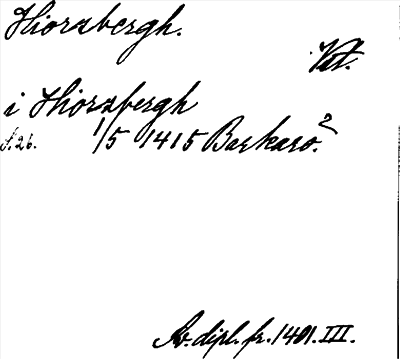 Hiorzbergh.
Vst.
i Hiorzbergh
S. 26. 1/5 1415 Barkarö.²
Sv. dipl. fr. 1401. III.